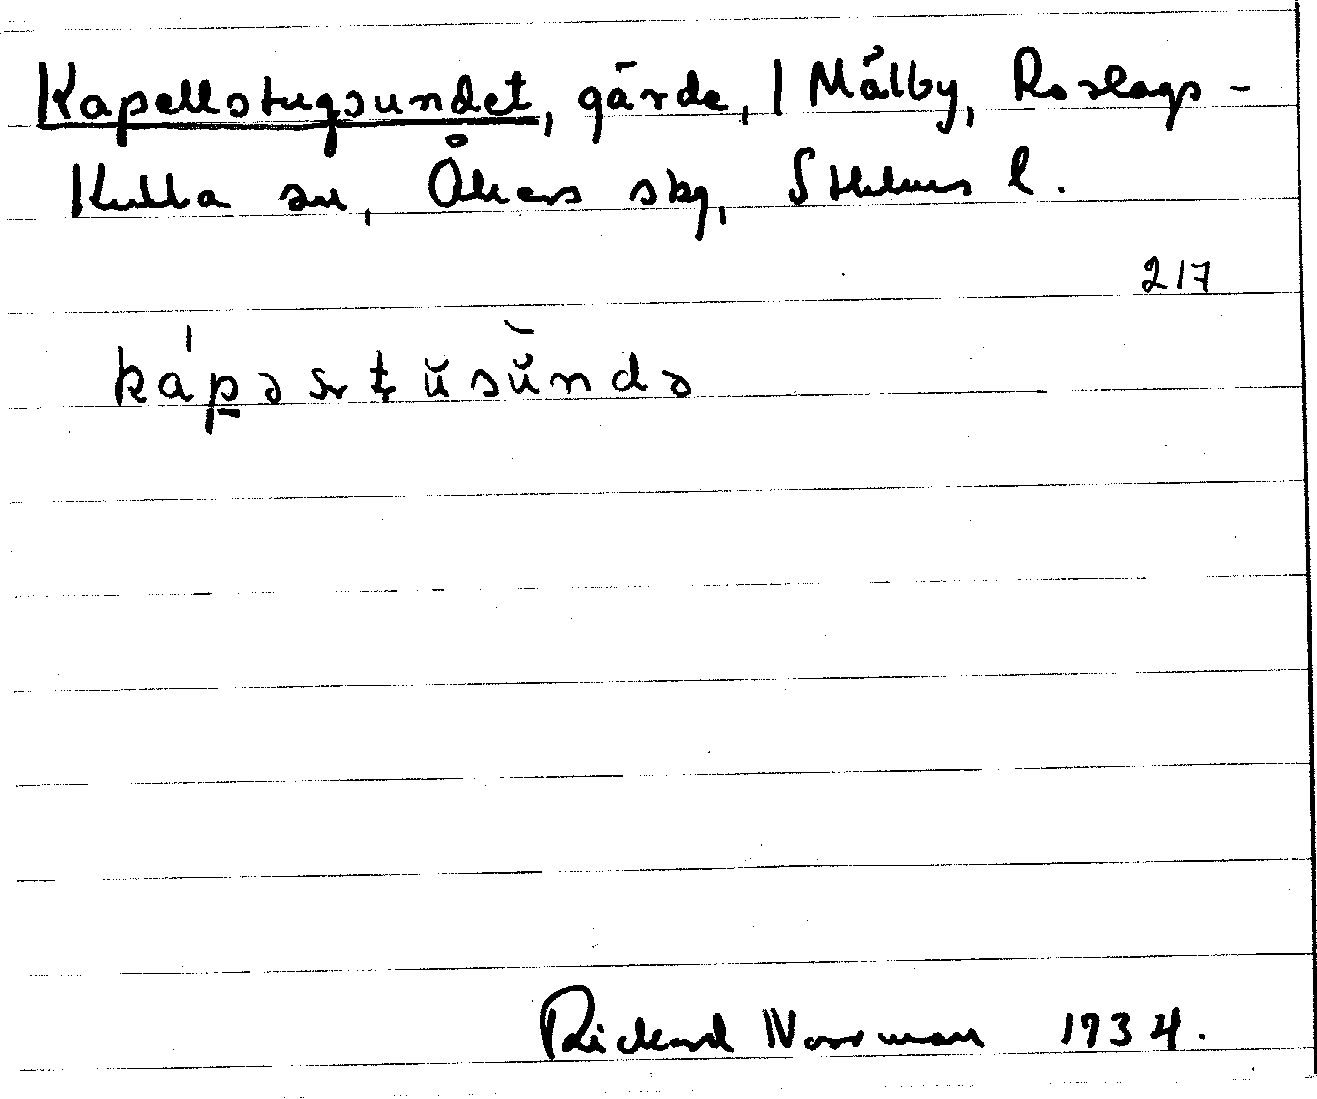 Kapellstugsundet, gärde, I Målby, Roslags-
Kulla sn, Åkers skg, Sthlms l.
217
Rickard Norrman 1934.